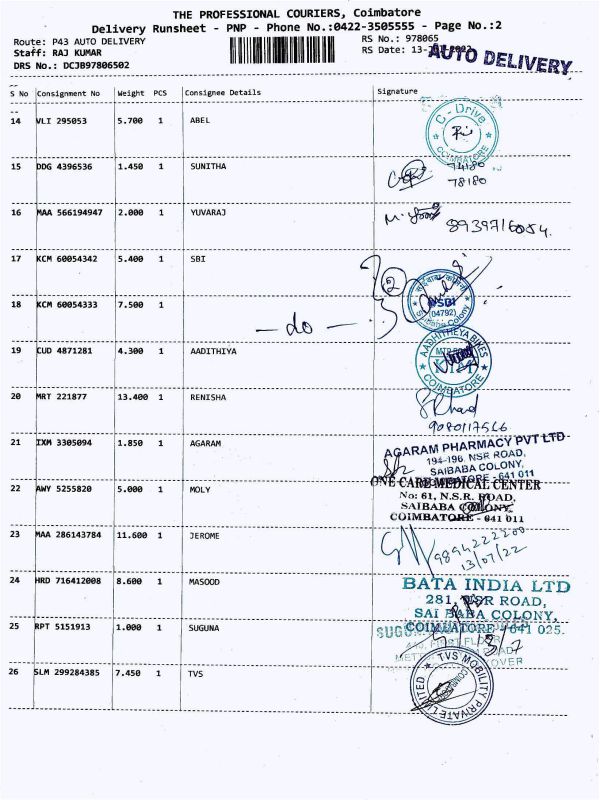 THE PROFESSIONAL COURIERS, Coimbatore
Delivery Runsheet - PNP - Phone No.:0422-3505555 - Page No.:2
Route: P43 AUTO DELIVERY RS No.: 978065
Staff: RAJ KUMAR RS Date: 13-
DRS No.: DCJB97806502 AUTO DELIVERY
S No Consignment No Weight PCS Consignee Details Signature
14 VLI 295053 5.700 1 ABEL
C - Drive
COIMBATORE
15 DDG 4396536 1.450 1 SUNITHA
74180
78180
16 MAA 566194947 2.000 1 YUVARAJ
8939716054.
17 KCM 60054342 5.400 1 SBI
2
SBI
(04792)
Saibaba Colony
18 KCM 60054333 7.500 1
- do -
19 CUD 4871281 4.300 1 AADITHIYA
AADHITHEYA BIKES
COIMBATORE
20 MRT 221877 13.400 1 RENISHA
21 IXM 3305094 1.850 1 AGARAM
AGARAM PHARMACY PVT LTD
194-196, NSR ROAD,
SAIBABA COLONY,
COIMBATORE - 641 011
22 AWY 5255820 5.000 1 MOLY
ONE CARE MEDICAL CENTER
No: 61, N.S.R. ROAD,
SAIBABA COLONY,
COIMBATORE - 641 011
23 MAA 286143784 11.600 1 JEROME
9894222200
13/07/22
24 HRD 716412008 8.600 1 MASOOD
BATA INDIA LTD
281, NSR ROAD,
SAI BABA COLONY,
COIMBATORE - 641 025.
25 RPT 5151913 1.000 1 SUGUNA
FIRST FLOOR
13/7
26 SLM 299284385 7.450 1 TVS
TVS MOBILITY PRIVATE LIMITED